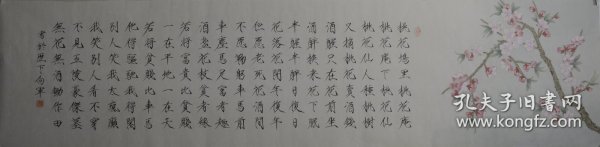 桃花塢里桃花庵
桃花庵下桃花仙
桃花仙人種桃樹
又摘桃花賣酒錢
酒醒只在花前坐
酒醉換來花下眠
半醒半醉日復日
花落花開年復年
但愿老死花酒間
不愿鞠躬車馬前
車塵馬足富者趣
酒盞花枝貧者緣
若將富貴比貧賤
一在平地一在天
若將貧賤比車馬
他得驅馳我得閑
別人笑我太瘋癲
我笑別人看不穿
不見五陵豪傑墓
無花無酒鋤作田
孔夫子旧书网
www.kongfz.com